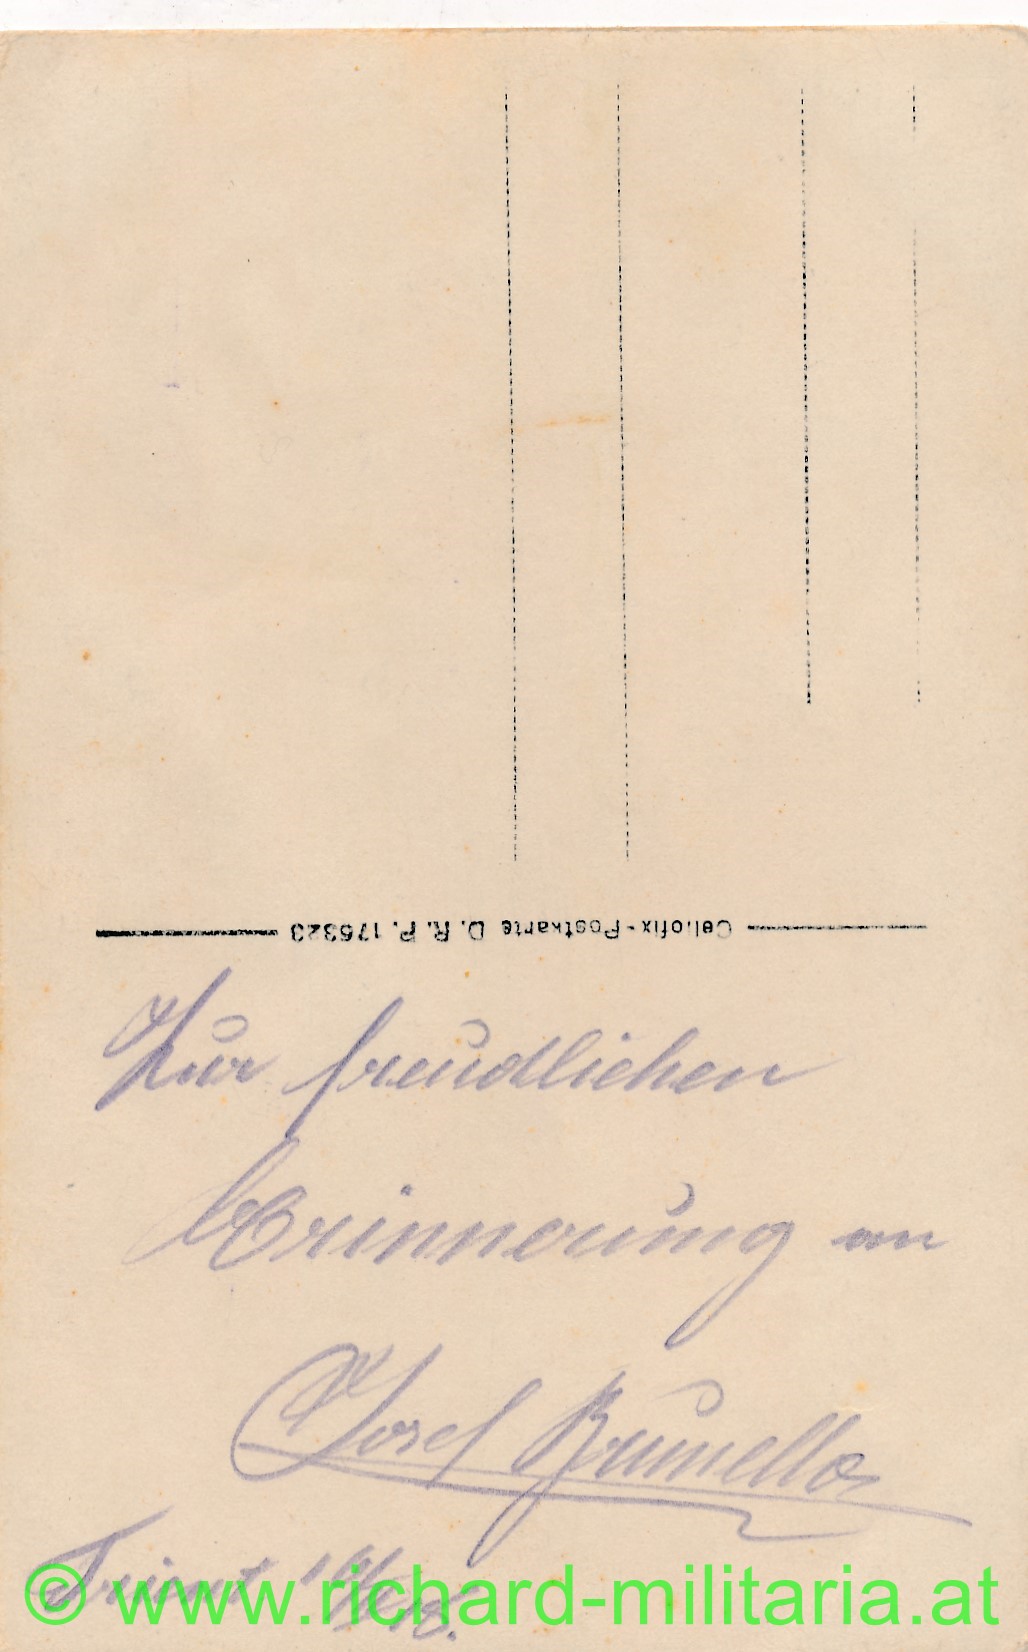 Celiofix-Postkarte D. R. P. 176323
Zur freudlichen
Erinnerung an
Josef Brunello
Trient
© www.richard-militaria.at